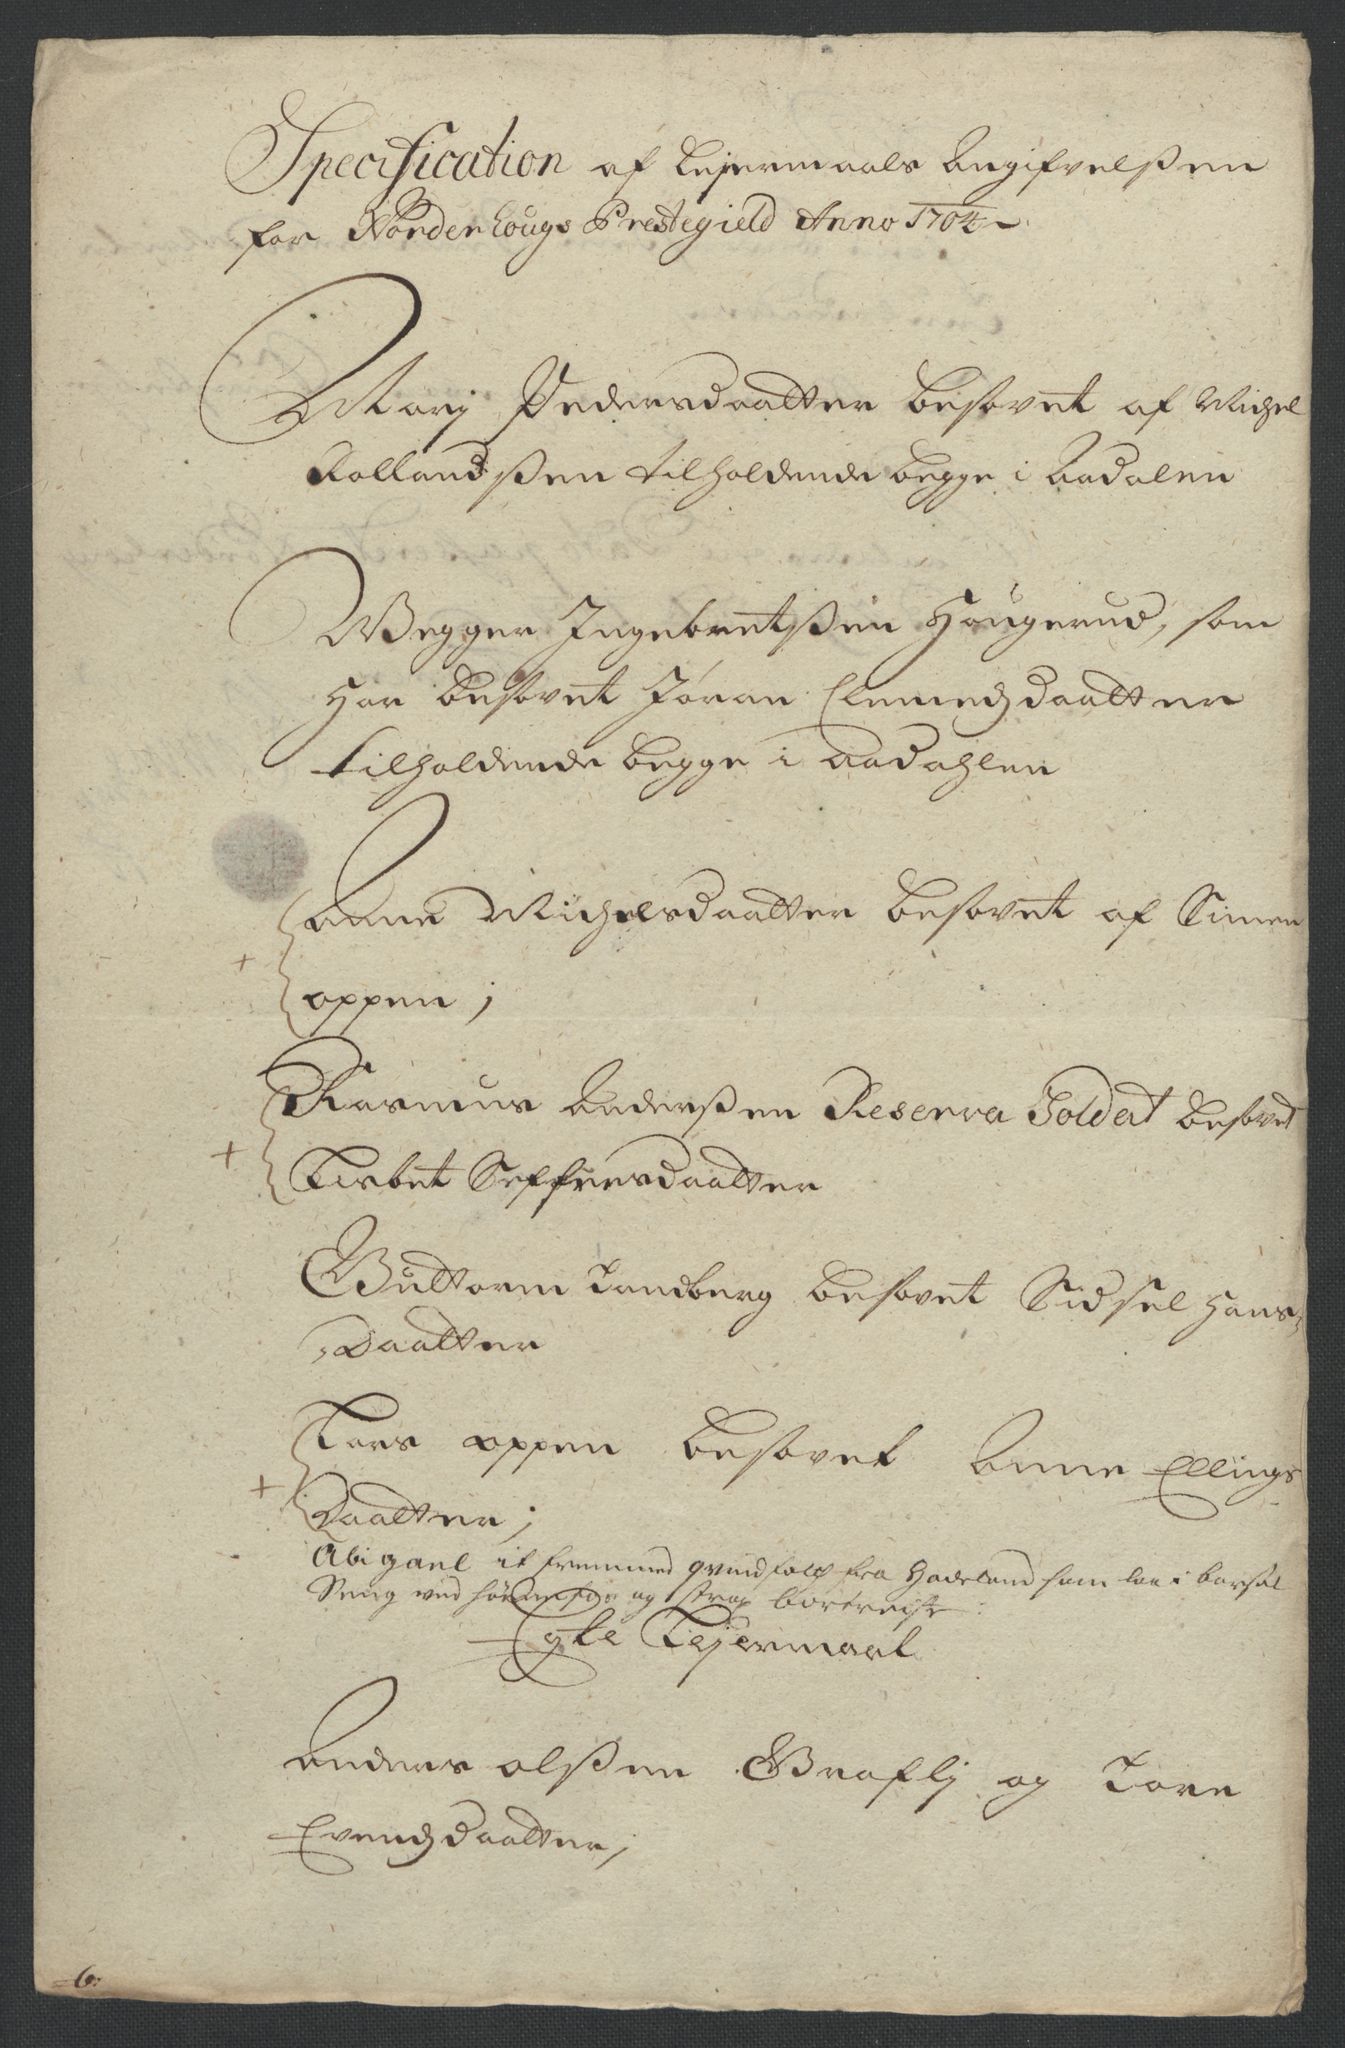 Specification af Leyermaals Angifvelsßen
for Nordenhougs Prestegield Anno 1704
Marj Pedersdaatter besovet af Michel
Rollandsßen tilholdende begge i Aadalen
Wegger Ingebretsßen Hougerud, som
har besovet Jøran Clemedsdaatter
tilholdende begge i Aadahlen
Anne Michelsdaatter besovet af Simen
oppen;
+
Rasmus Andersßen Reserva Soldat besovet
+
Lisbet Seffrensdaatter
Guttorm Tandberg besovet Sidsel Hans
Daatter
Lars oppen besovet Anne Ellings
+
Daatter;
Abigael it fremmed qvindfolch fra Hadeland som laa i barsel
Seng ved og strax bortreiste
Egte Lejermaal
Anders olsßen Graflj og Tore
Evendsdaatter;
6: